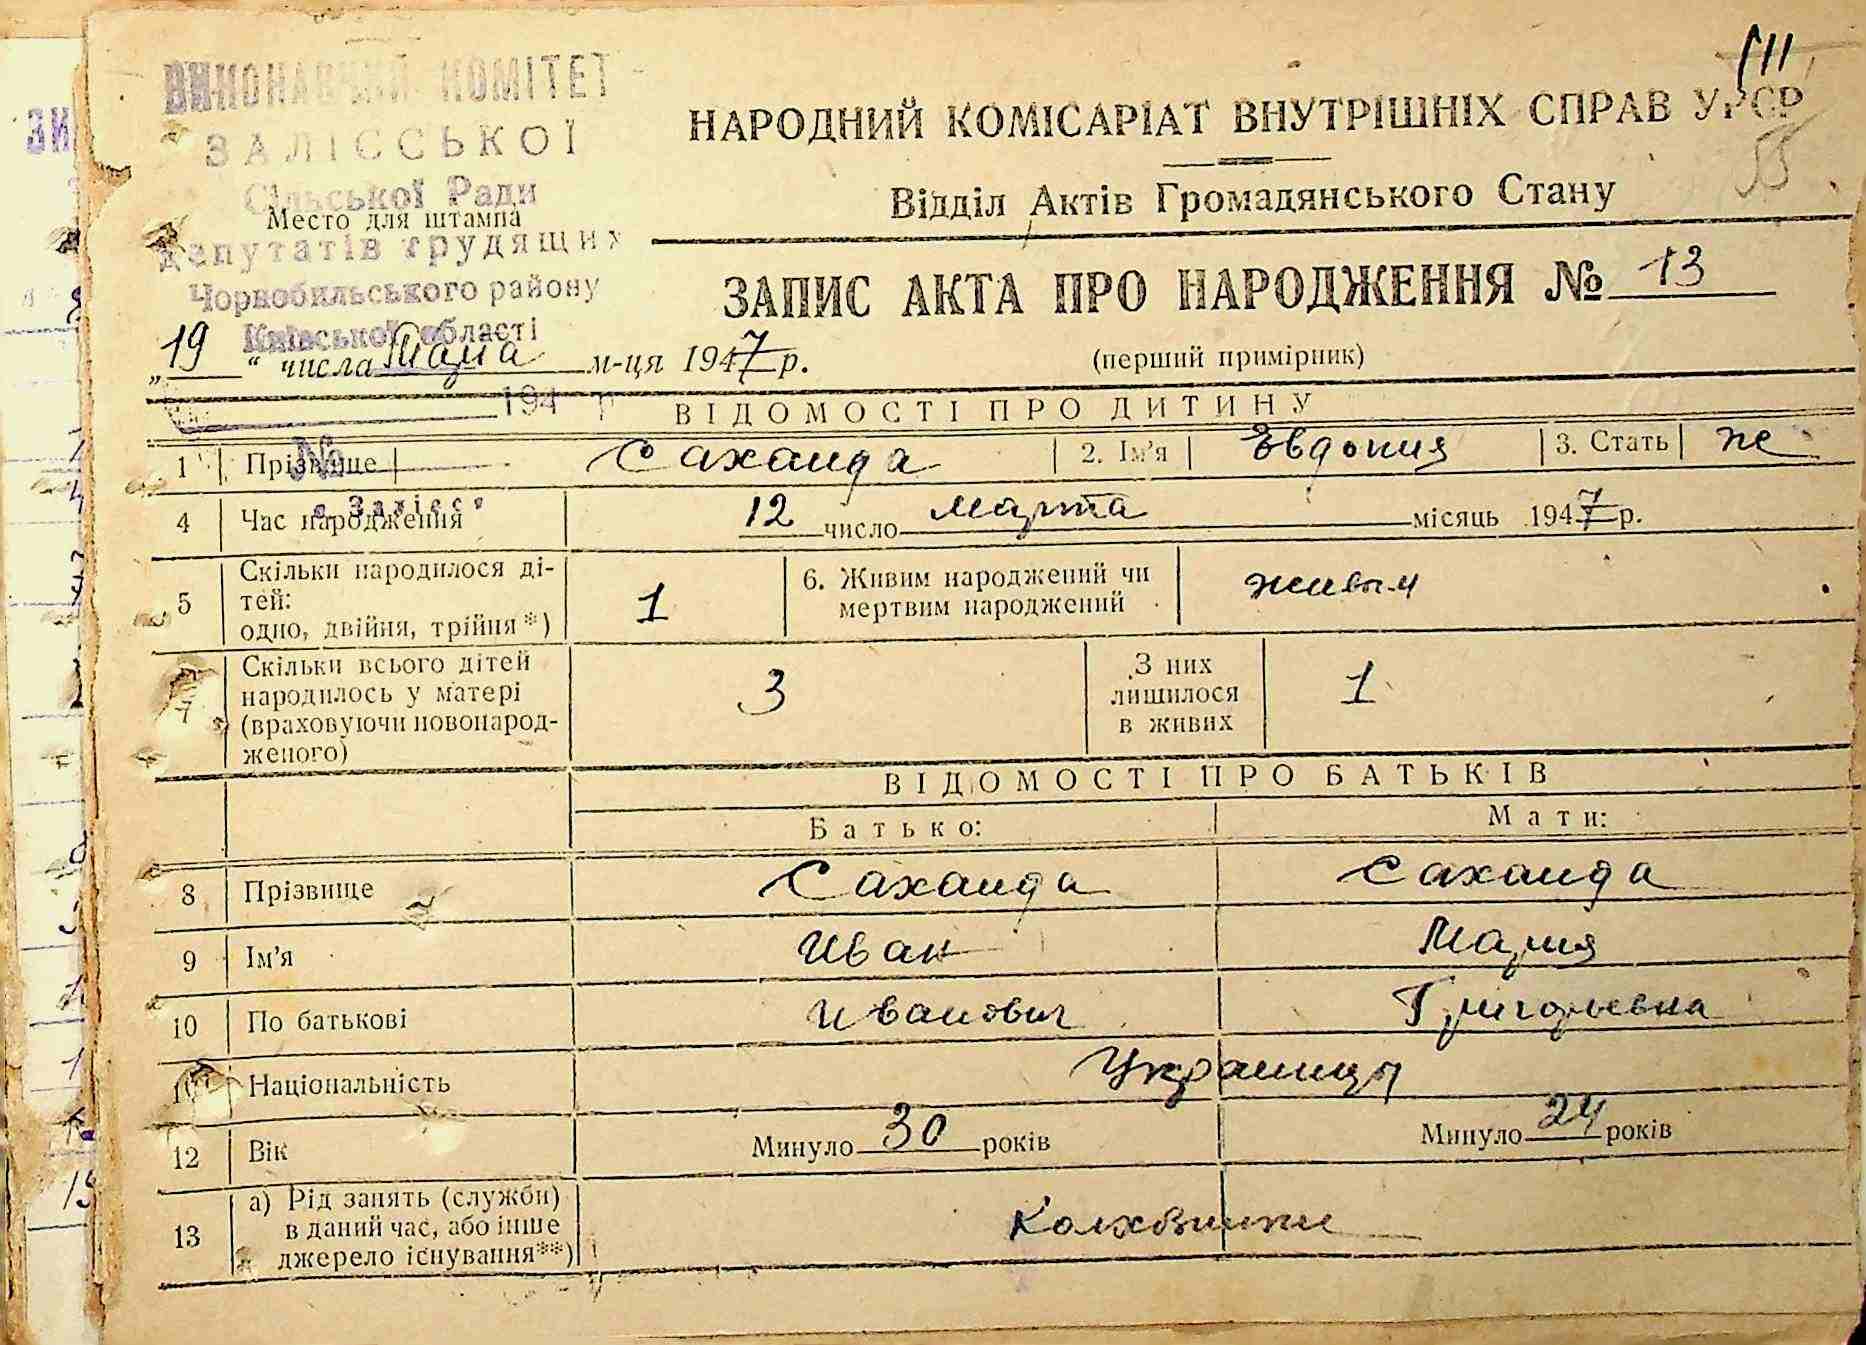 111
ВИКОНАВЧИЙ КОМІТЕТ
ЗАЛІССЬКОЇ
Сільської Ради
Место для штампа
депутатів трудящих
Чорнобильського району
Київської області
194 р
№
с Залісся
НАРОДНИЙ КОМІСАРІАТ ВНУТРІШНІХ СПРАВ УРСР
55
Відділ Актів Громадянського Стану
ЗАПИС АКТА ПРО НАРОДЖЕННЯ № 13
„19“ числа Марта м-ця 1947 р.
(перший примірник)
ВІДОМОСТІ ПРО ДИТИНУ
1 Прізвище Саханда 2. Ім’я Евдокия 3. Стать ж
4 Час народження 12 число марта місяць 1947 р.
5 Скільки народилося ді-
тей:
одно, двійня, трійня*) 1
6. Живим народжений чи
мертвим народжений живым
7 Скільки всього дітей
народилось у матері
(враховуючи новонарод-
женого) 3
З них
лишилося
в живих 1
ВІДОМОСТІ ПРО БАТЬКІВ
Батько: Мати:
8 Прізвище Саханда Саханда
9 Ім’я Иван Мария
10 По батькові Иванович Григорьевна
Національність Украинцы
12 Вік Минуло 30 років Минуло 24 років
13 а) Рід занять (служби)
в даний час, або інше
джерело існування**) Колхозники